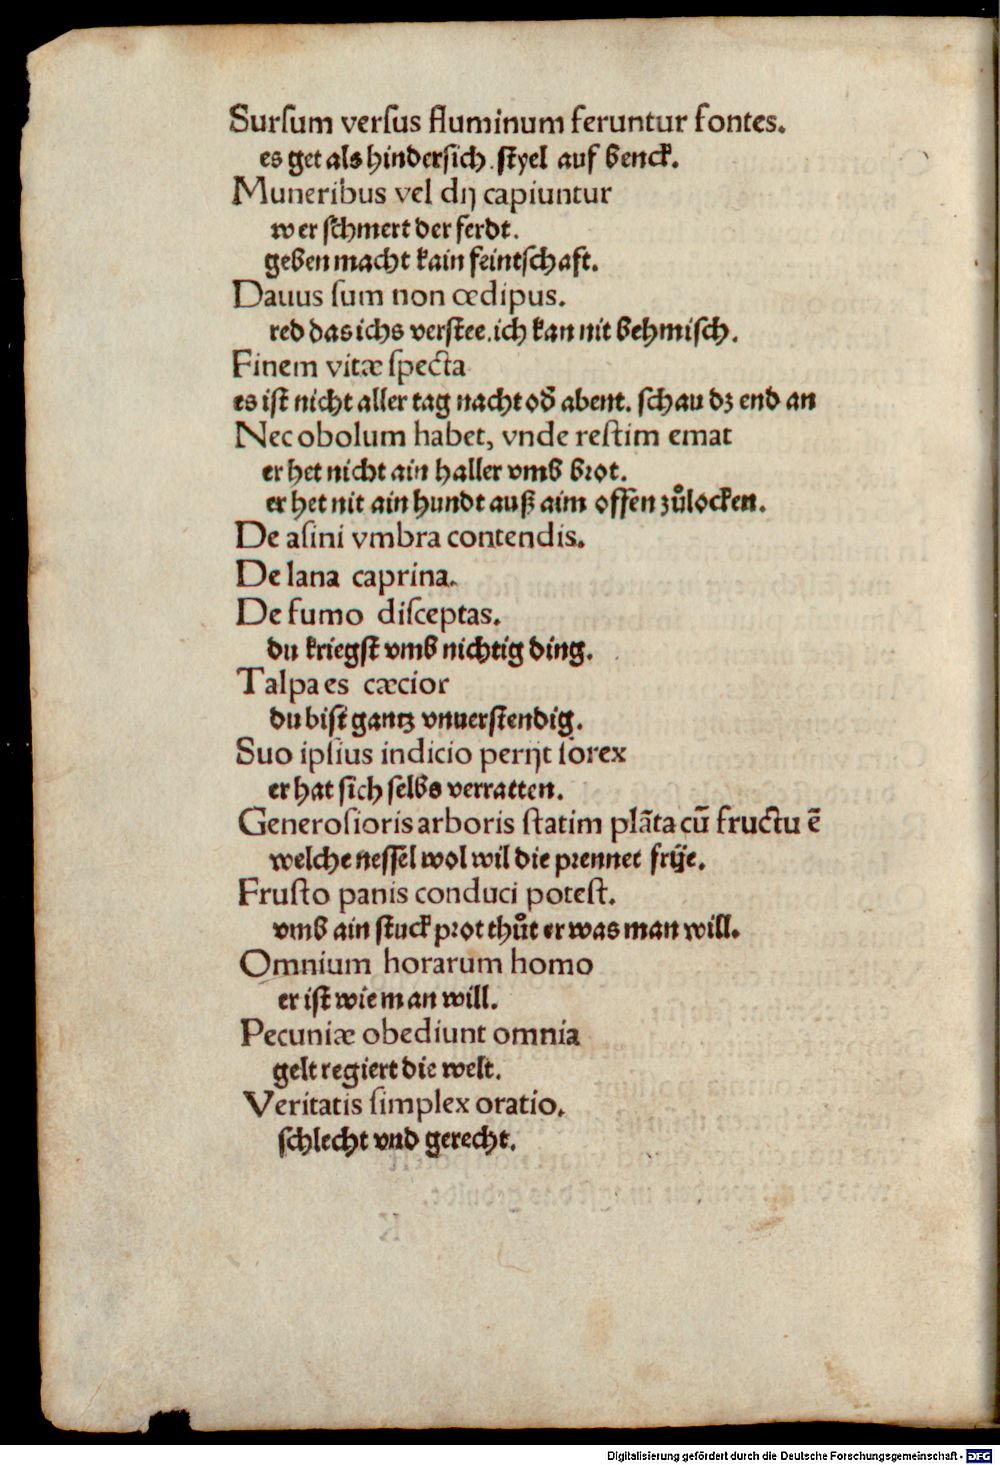 Surſum verſus fluminum feruntur fontes.
es get als hinderſich. ſtyel auf benck.
Muneribus vel dij capiuntur
wer ſchmert der ferdt.
geben macht kain feintſchaft.
Dauus ſum non œdipus.
red das ichs verſtee. ich kan nit behmiſch.
Finem vitæ ſpecta
es iſt nicht aller tag nacht od̄ abent. ſchau dz end an
Nec obolum habet, vnde reſtim emat
er het nicht ain haller vmb brot.
er het nit ain hundt auß aim offen zůlocken.
De aſini vmbra contendis.
De lana caprina.
De fumo diſceptas.
du kriegſt vmb nichtig ding.
Talpa es cæcior
du biſt gantz vnuerſtendig.
Suo ipſius indicio perijt ſorex
er hat ſich ſelbs verratten.
Generoſioris arboris ſtatim plāta cū fructu ē
welche neſſel wol wil die prennet frije.
Fruſto panis conduci poteſt.
vmb ain ſtuck prot thůt er was man will.
Omnium horarum homo
er iſt wie man will.
Pecuniæ obediunt omnia
gelt regiert die welt.
Veritatis ſimplex oratio.
ſchlecht vnd gerecht.
Digitalisierung gefördert durch die Deutsche Forschungsgemeinschaft - DFG